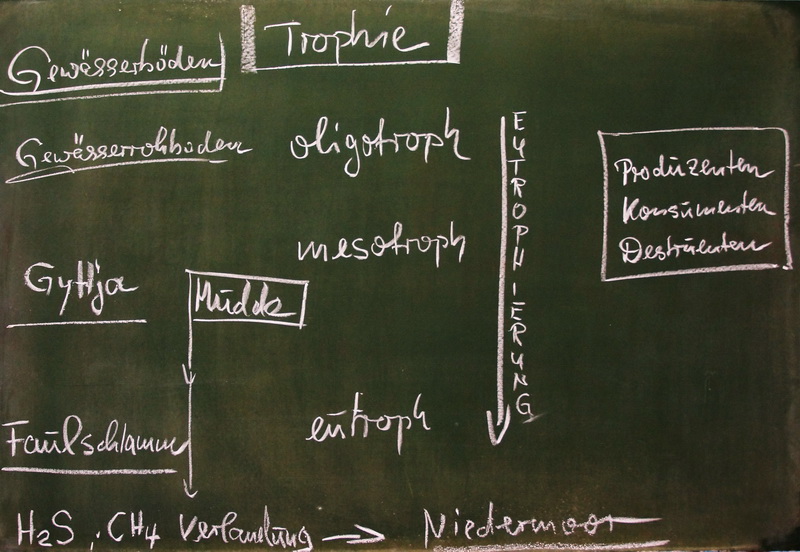 Trophie
Gewässerböden
Gewässerrohböden
oligotroph
EUTROPHIERUNG
Produzenten
Konsumenten
Destruenten
mesotroph
Gyttja
Mudde
eutroph
Faulschlamm
H₂S, CH₄ Verlandung → Niedermoor